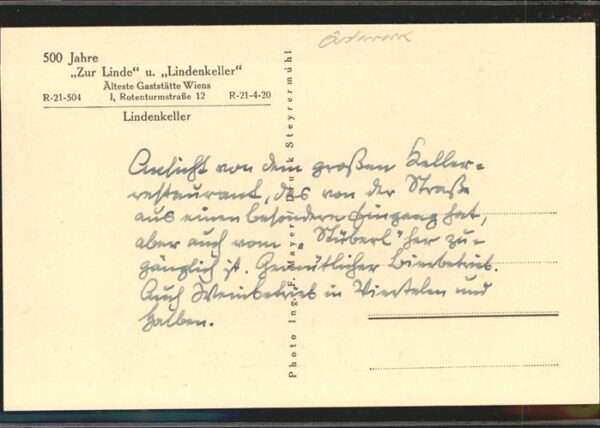 Österreich
500 Jahre
„Zur Linde“ u. „Lindenkeller“
Älteste Gaststätte Wiens
R-21-504 I, Rotenturmstraße 12 R-21-4-20
Lindenkeller
Ansicht von dem großen Keller-
restaurant, das von der Straße
aus einen besonderen Eingang hat,
aber auch vom „Stüberl“ her zu-
gänglich ist. Gemütlicher Bierbetrieb.
Auch Weinbetrieb in Vierteln und
Halben.
Photo Ing. F. Mayer / Druck Steyrermühl